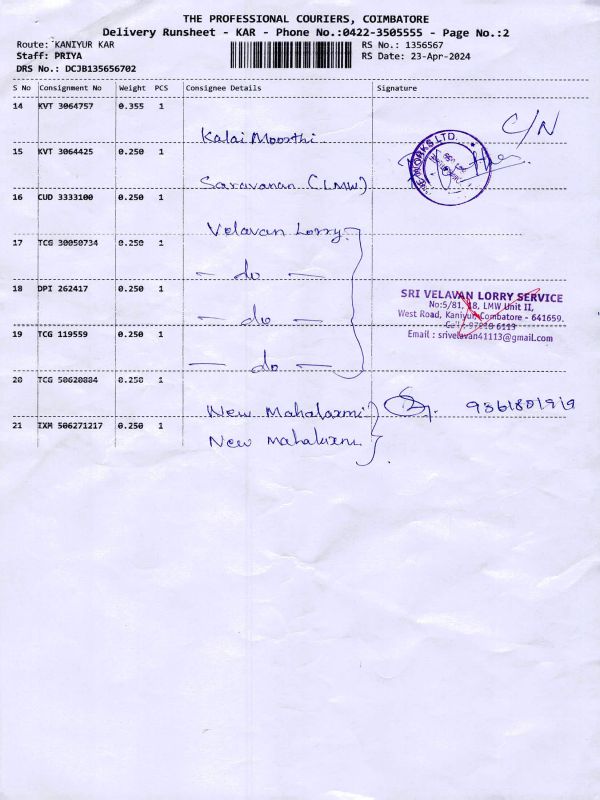 THE PROFESSIONAL COURIERS, COIMBATORE
Delivery Runsheet - KAR - Phone No.:0422-3505555 - Page No.:2
Route: KANIYUR KAR RS No.: 1356567
Staff: PRIYA RS Date: 23-Apr-2024
DRS No.: DCJB135656702
S No Consignment No Weight PCS Consignee Details Signature
14 KVT 3064757 0.355 1
Kalai Moorthi C/N
15 KVT 3064425 0.250 1
WORKS LTD.
Saravanan (LMW)
16 CUD 3333100 0.250 1
Velavan Lorry
17 TCG 30050734 0.250 1
— do —
18 DPI 262417 0.250 1
SRI VELAVAN LORRY SERVICE
No:5/81, 18, LMW Unit II,
West Road, Kaniyur, Coimbatore - 641659.
— do —
19 TCG 119559 0.250 1
Email : srivelavan41113@gmail.com
— do —
20 TCG 50620884 0.250 1
New Mahalaxmi
21 IXM 506271217 0.250 1
New Mahalaxmi